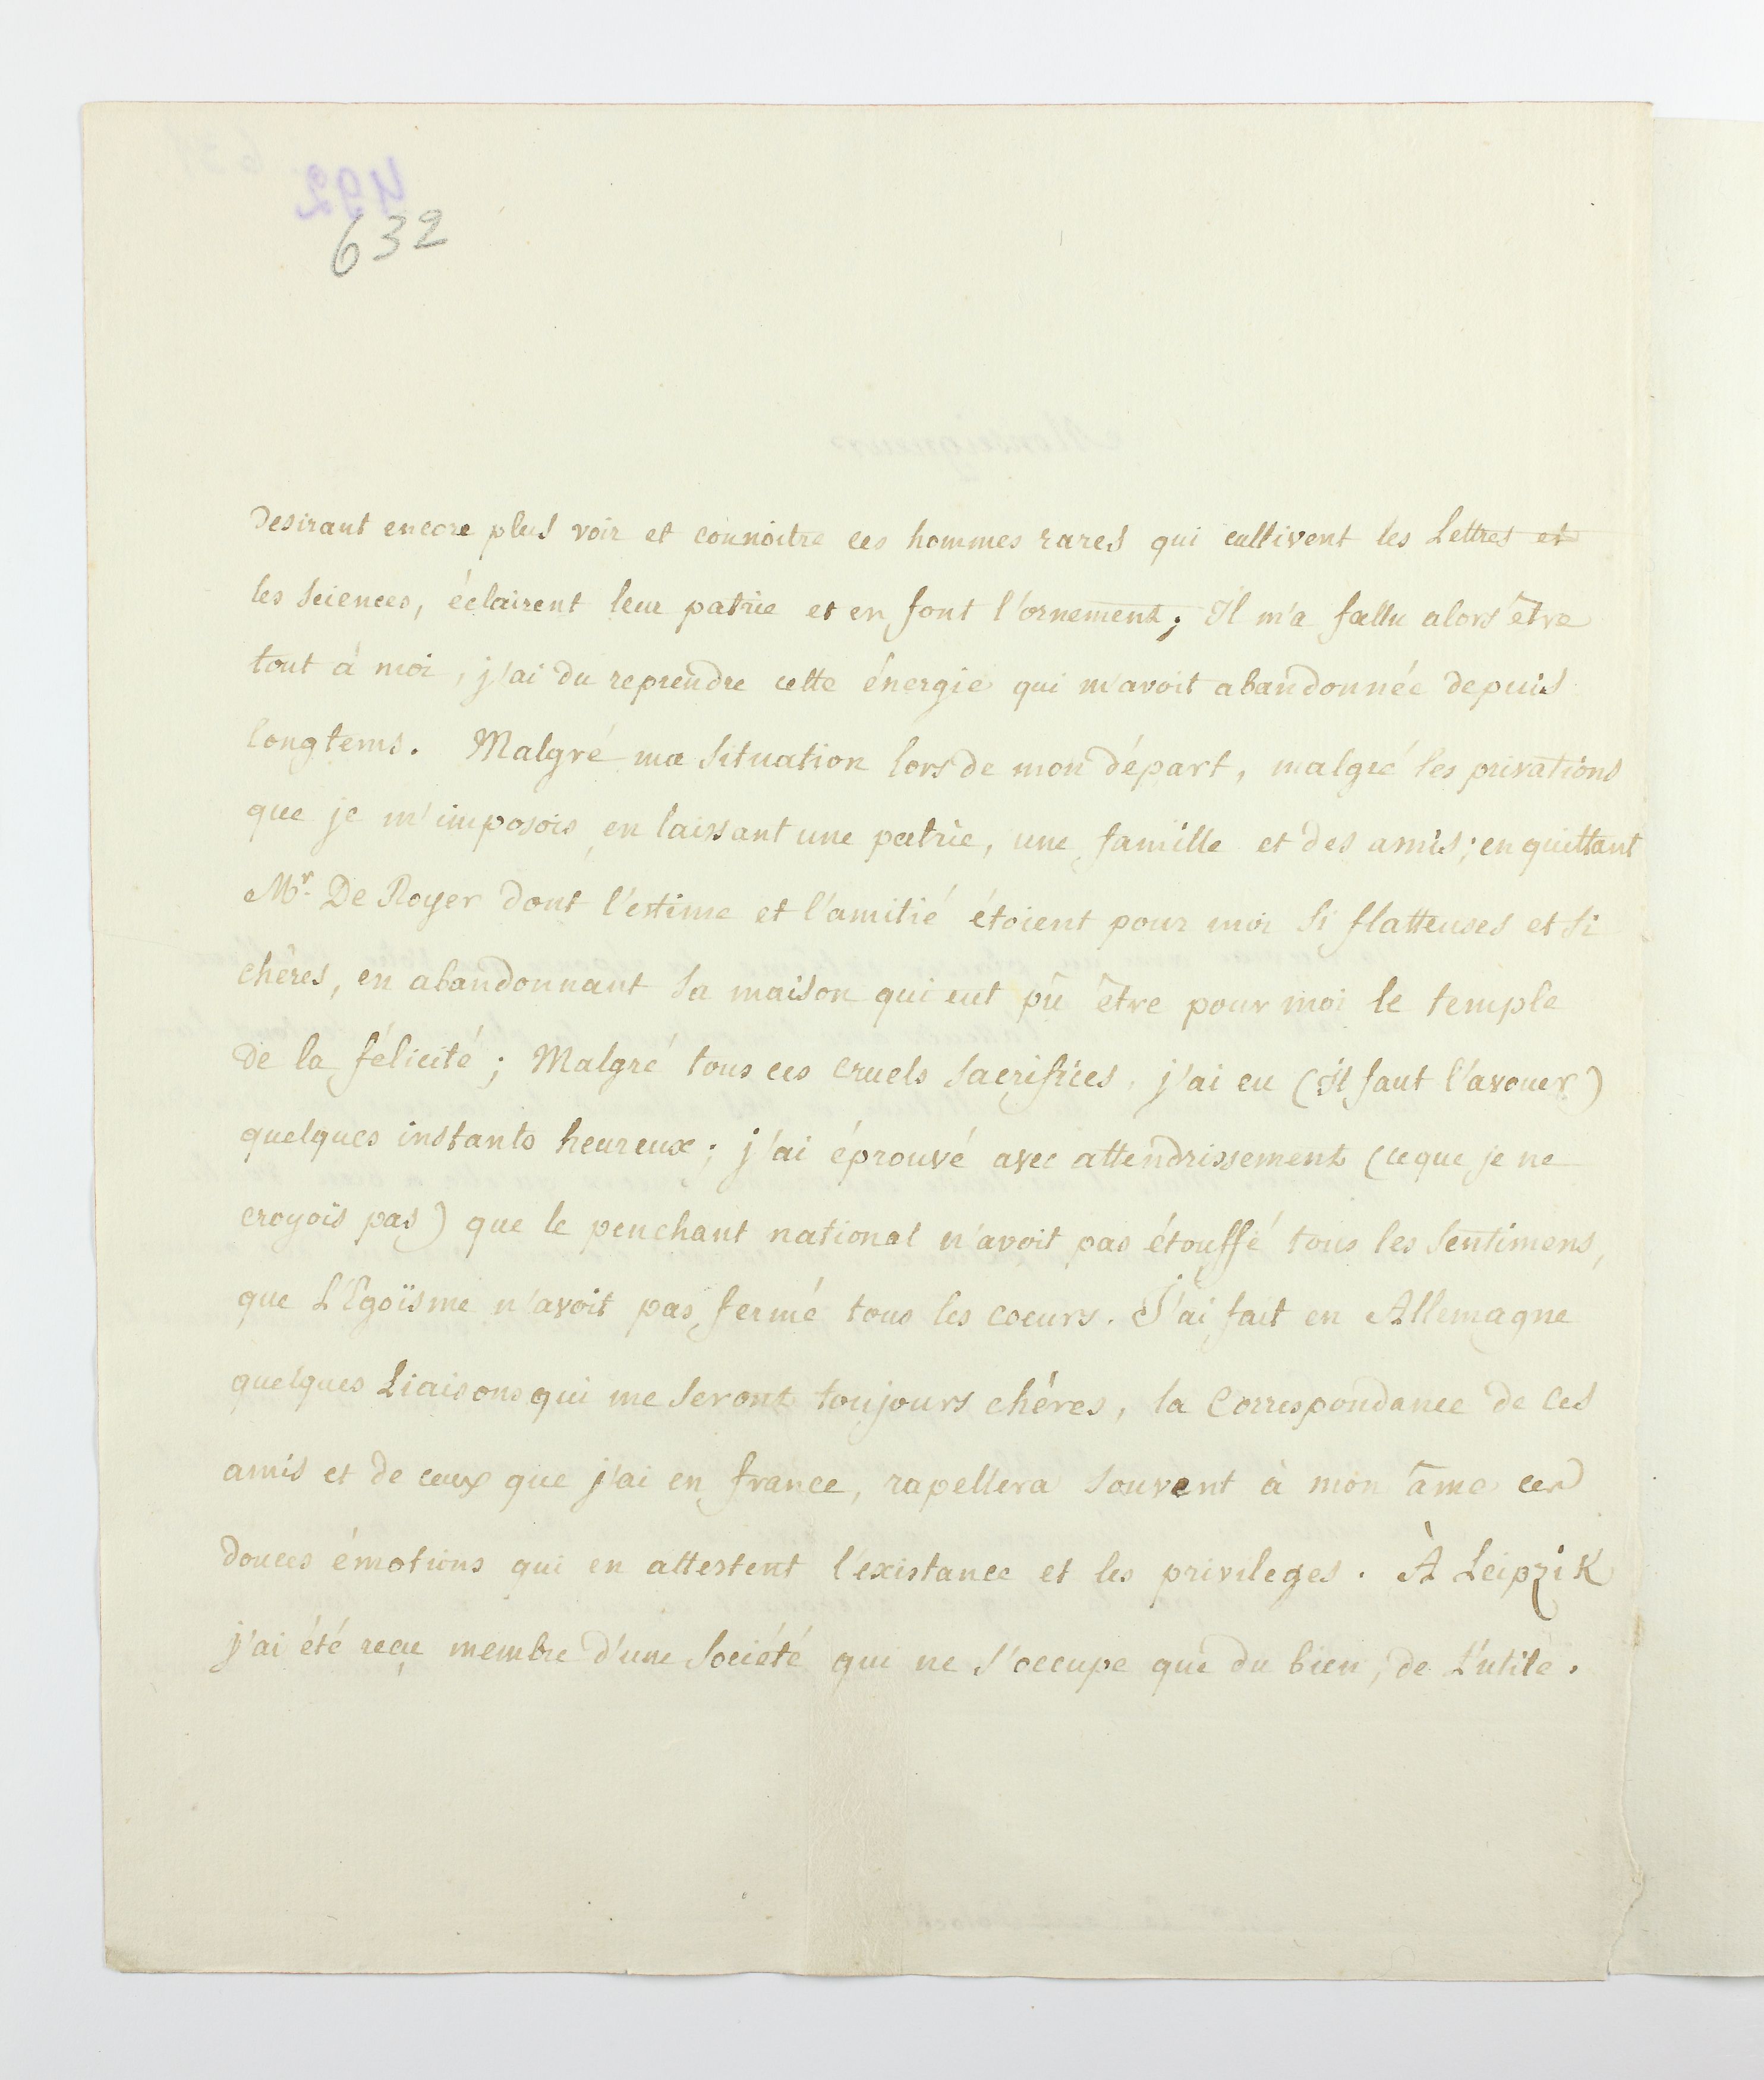 632
desirant encore plus voir et connoitre ces hommes rares qui cultivent les Lettres et
les Sciences, éclairent leur patrie et en font l'ornement; Il m'a fallu alors être
tout à moi, j'ai du reprendre cette énergie qui m'avoit abandonnée depuis
longtems. Malgré ma Situation lors de mon départ, malgré les privations
que je m'imposois en laissant une patrie, une famille et des amis; en quittant
Mr. De Royer dont l'estime et l'amitié étoient pour moi Si flatteuses et Si
chères, en abandonnant Sa maison qui eut pû être pour moi le temple
de la félicité; Malgré tous ces cruels Sacrifices, j'ai eu (il faut l'avouer)
quelques instants heureux; j'ai éprouvé avec attendrissement (ce que je ne
croyois pas) que le penchant national n'avoit pas étouffé tous les Sentimens,
que L'Egoïsme n'avoit pas fermé tous les coeurs. J'ai fait en Allemagne
quelques Liaisons qui me Seront toujours chères, la Correspondance de ces
amis et de ceux que j'ai en france, rapellera Souvent à mon âme ces
douces émotions qui en attestent l'existance et les privileges. À Leipzik
j'ai été reçu membre d'une Société qui ne S'occupe que du bien, de L'utile.